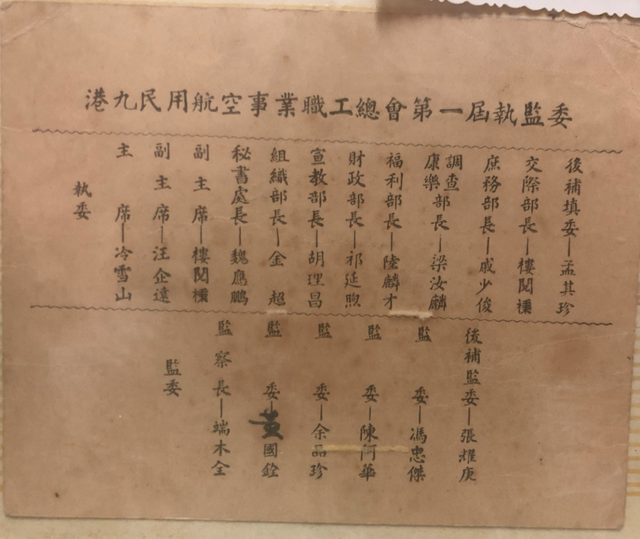 港九民用航空事業職工總會第一屆執監委
執委
主席—冷雪山
副主席—汪企遠
副主席—樓閱
秘書處長—魏應鵬
組織部長—金超
宣教部長—胡理昌
財政部長—祁延煦
福利部長—陸麟才
康樂調查部長—梁汝麟
庶務部長—戚少俊
交際部長—樓閱
後補填委—孟其珍
監委
監察長—端木全
監委—黃國銓
監委—余品珍
監委—陳阿華
監委—馮忠傑
後補監委—張耀庚